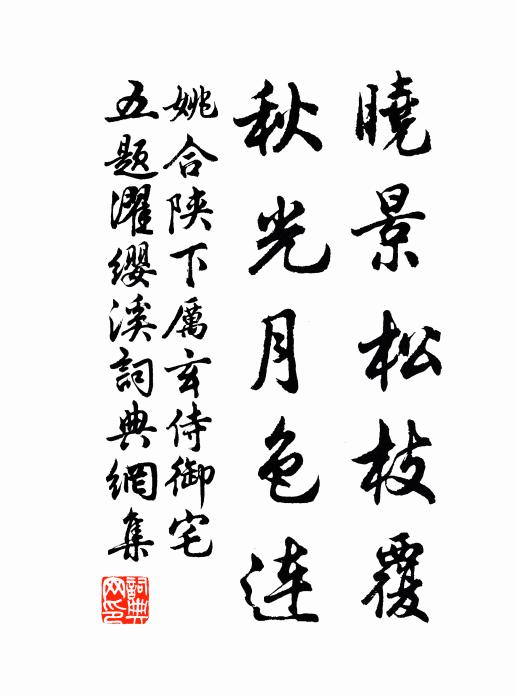 曉景松枝覆
秋光月色連
姚合陝下厲玄侍御宅
五題濯纓溪詞典網集
詞典网印